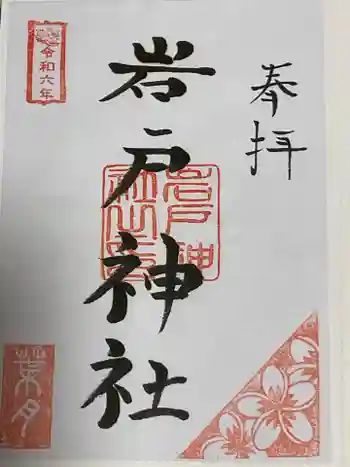 奉拝
岩戸神社
岩戸神
社之印
令和六年
葉月